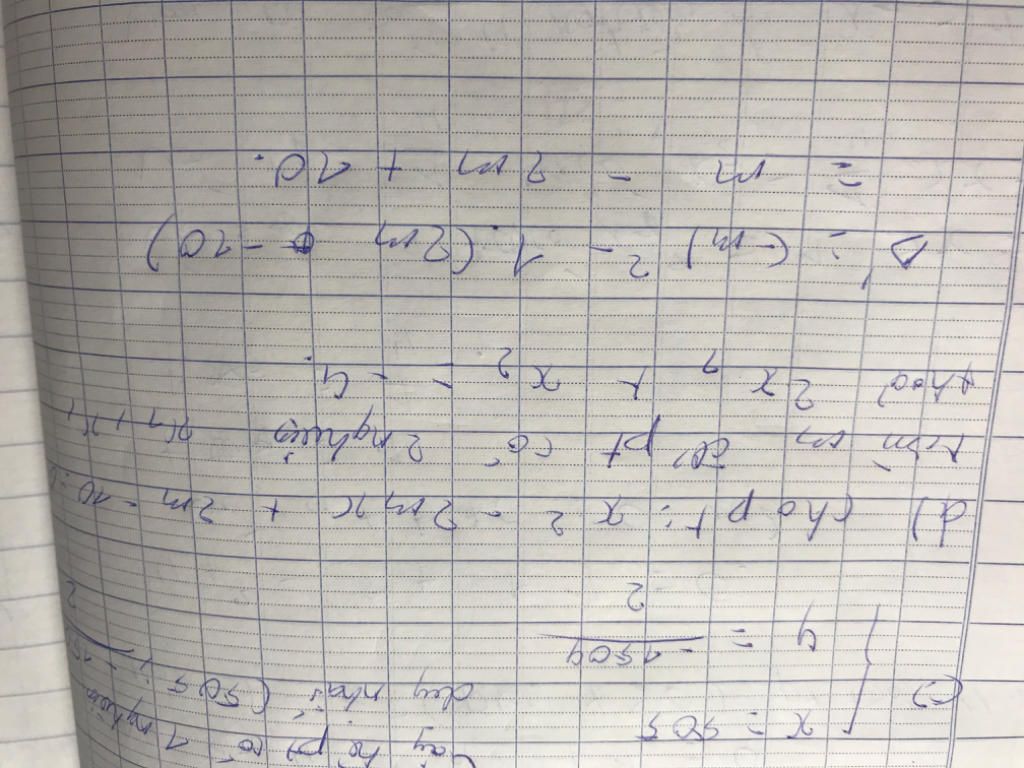 Vậy hệ pt có 1 nghiệm
x = 505
duy nhất (505 ;
(=)
y = -1504
2
d) Cho pt: x 2 - 2mx + 2m - 10 = 0
tìm m để pt có 2 nghiệm
thoả 2x + x 2 = - 4.
Δ' = (-m) 2 - 1.(2m - 10)
= m - 2m + 10.